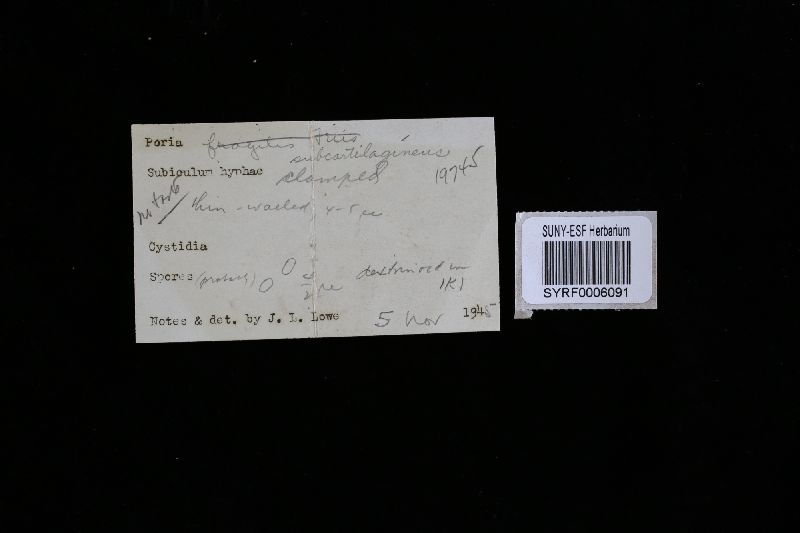 Poria fragilis Fries
subcartilagineus
Subiculum hyphae clamped 19745
thin-walled 4-5 µ
Cystidia
Spores (probably) dextrinoid in
IKI
Notes & det. by J. L. Lowe 5 Nov 1945
SUNY-ESF Herbarium
SYRF0006091